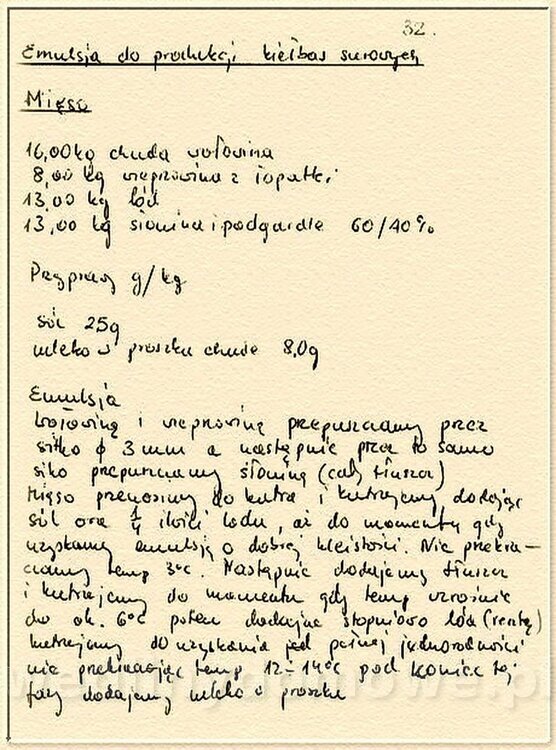 32.
Emulsja do produkcji kiełbas surowych
Mięso
16,00kg chuda wołowina
8,00 kg wieprzowina z łopatki
13,00 kg lód
13,00 kg słonina i podgardle 60/40%
Przyprawy g/kg
sól 25g
mleko w proszku chude 8,0g
Emulsja
Wołowinę i wieprzowinę przepuszczamy przez
sitko ϕ 3mm a następnie przez to samo
sitko przepuszczamy słoninę (cały tłuszcz)
Mięso przenosimy do kutra i kutrujemy dodając
sól oraz 1/4 ilości lodu, aż do momentu gdy
uzyskamy emulsję o dobrej kleistości. Nie przekra-
czamy temp 3°C. Następnie dodajemy tłuszcz
i kutrujemy do momentu gdy temp wzrośnie
do ok. 6°C potem dodając stopniowo lód (resztę)
kutrujemy do uzyskania pełnej jednorodności
nie przekraczając temp 12-14°C pod koniec tej
fazy dodajemy mleko w proszku
wedlinydomowe.pl